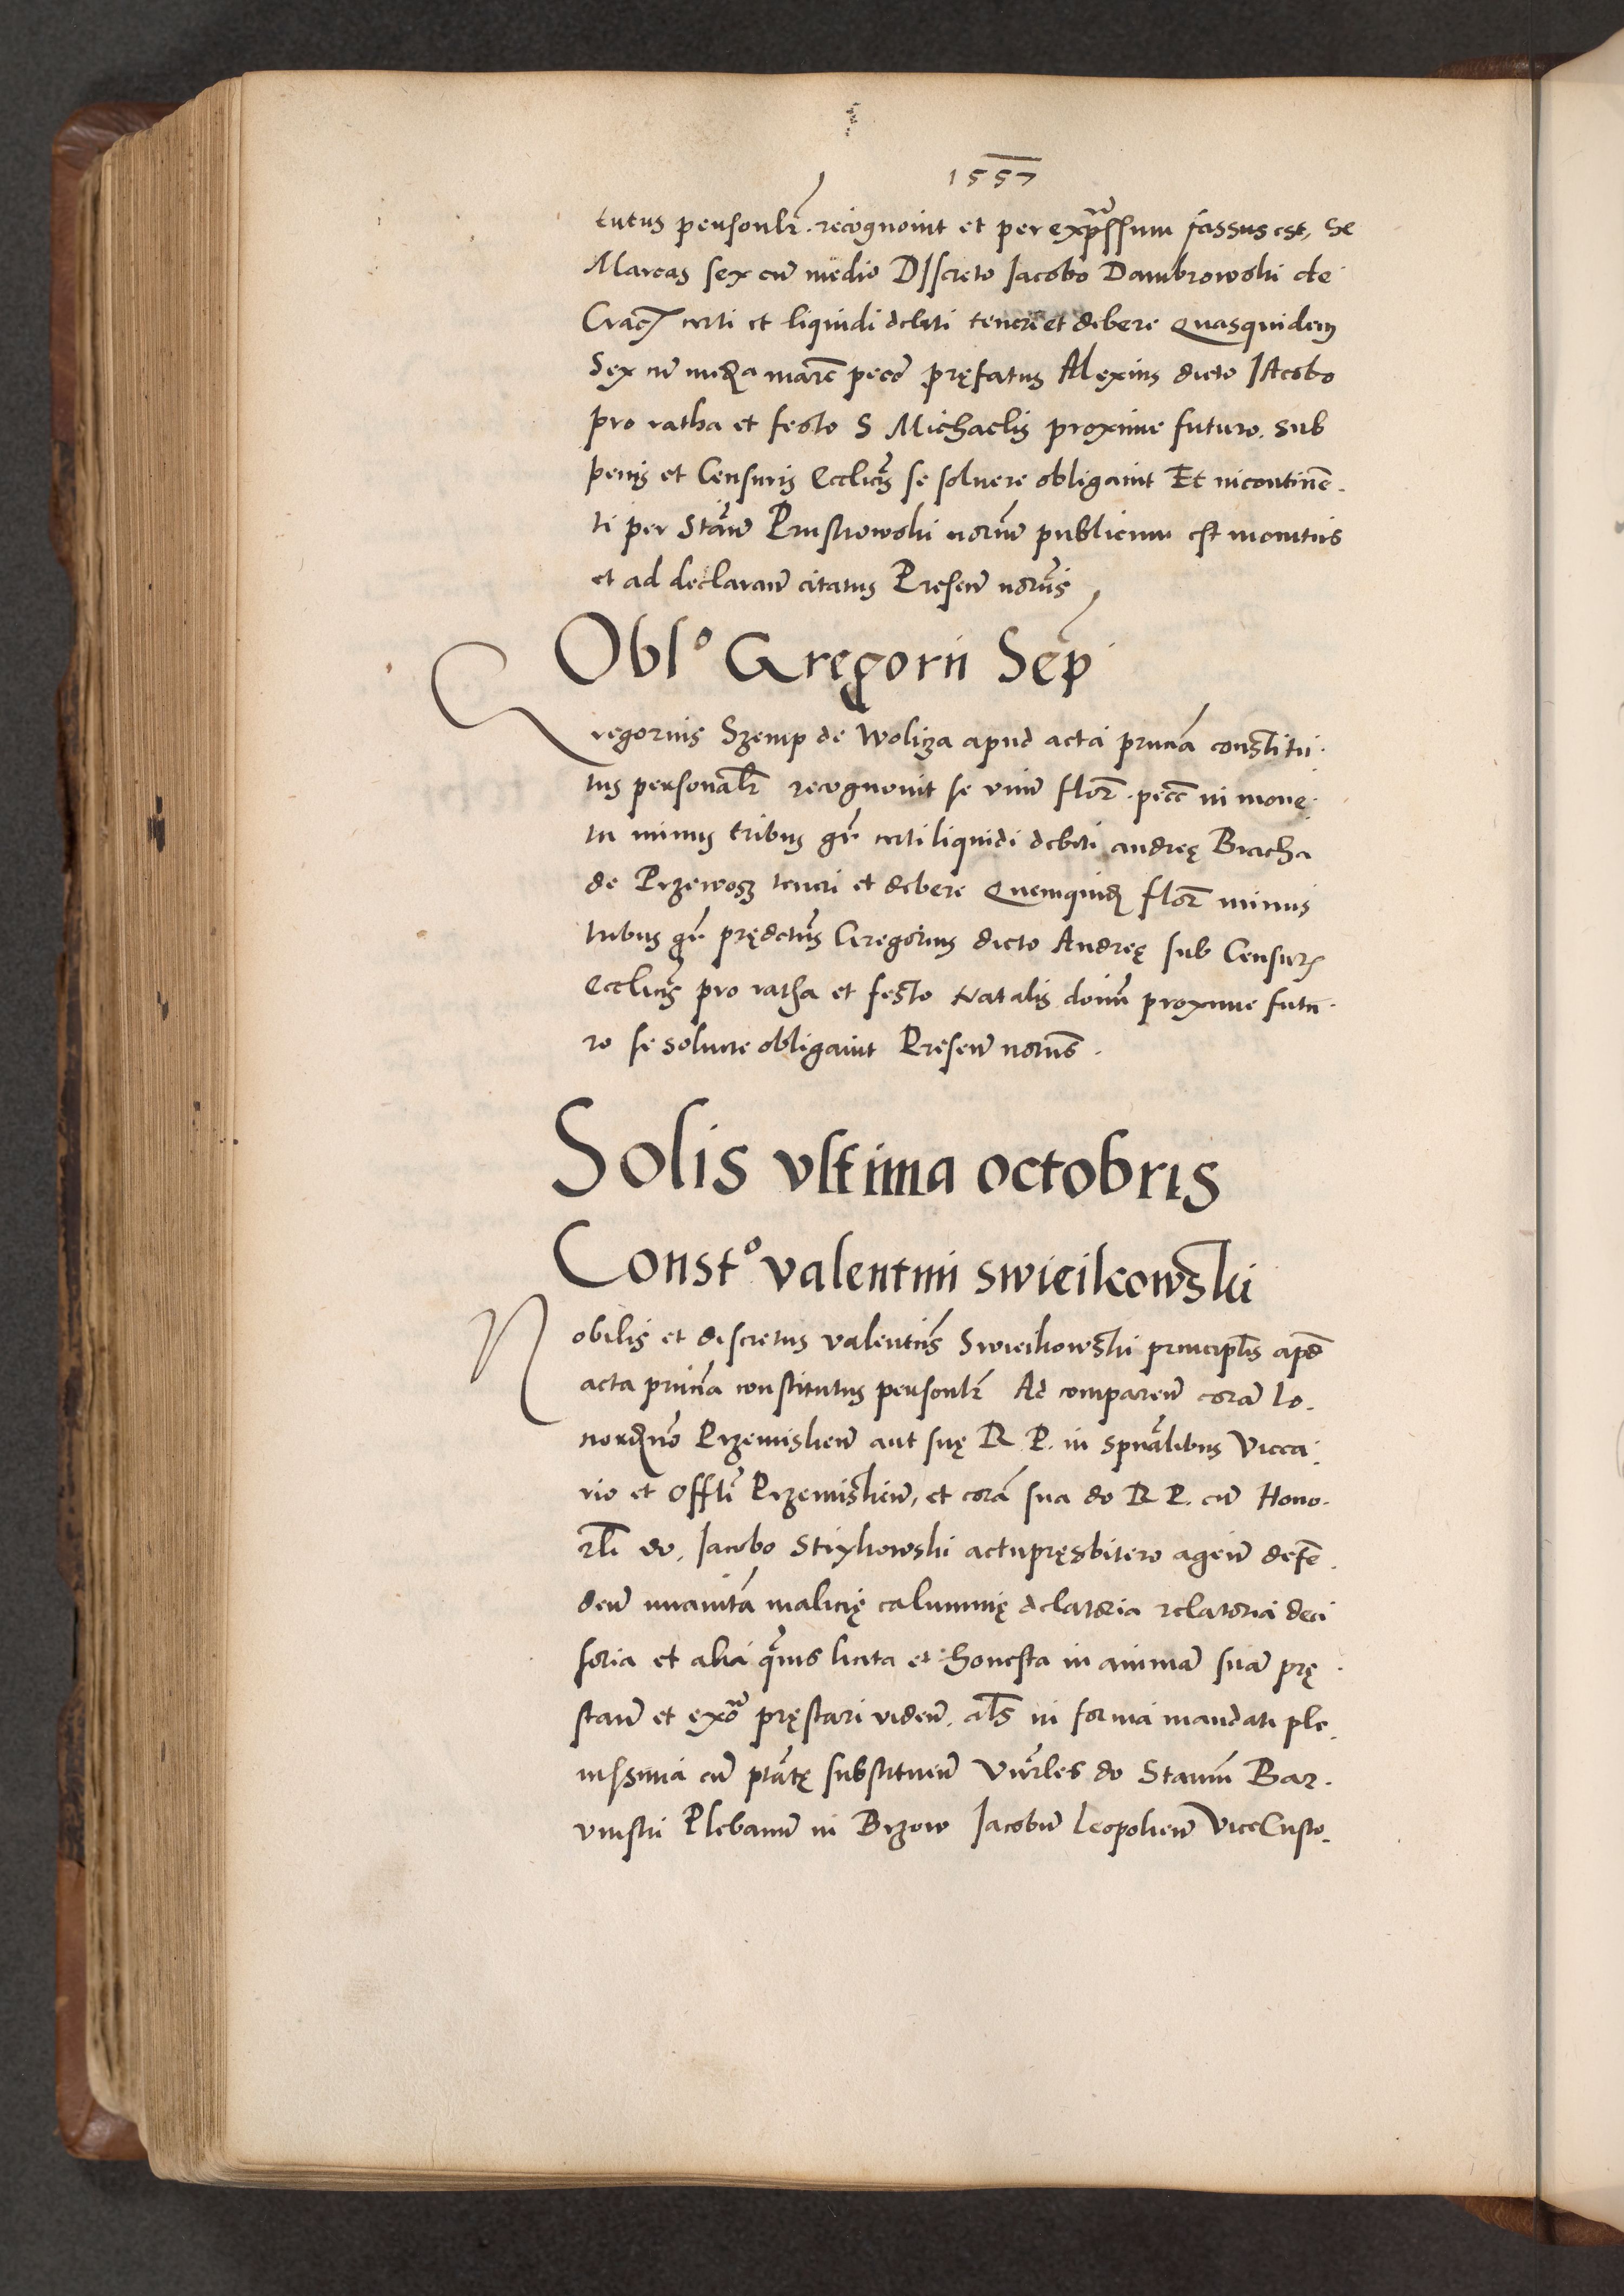 1557
tutus personlr. recognovit et per expressum fassus est, Se
Marcas sex cum medio Discreto Jacobo Dambrowski de
Crac certi et liquidi debiti teneri et debere Quasquidem
Sex cum media marc pecc pręfatus Alexius dicto Jacobo
pro ratha et festo S Michaelis proxime futuro. sub
penis et Censuris Ecclicis se solvere obligavit Et incontinen-
ti per Stanm Prustrowski norium publicum est monitus
et ad declarand citatus Presen noriis
Oblo Gregorii Sęp
Gregorius Szemp de Woliza apud acta prntia constitu-
tus personalr recognovit se unum flor. pecc in mone-
ta minus tribus gr certi liquidi debiti andreę Bracha
de Przewosz teneri et debere Quemquid flor minus
tribus gr prędctus Gregorius dicto Andreę sub Censur
Ecclicis pro ratha et festo Natalis domini proxime futu-
ro se solvere obligavit Presen noriis.
Solis ultima octobris
Consto valentini swieikowski
Nobilis et discretus valentinus Swieikowski principlis apud
acta prntia constitutus personlr Ad comparen coram lo-
nordinio Przemislien aut suę R P. in spualibus Vicca-
rio et offli Przemislien, et coram sua do R P. cum Hono-
rli do. Jacobo Strykowski actupręsbitero agen defen-
den iuramta malicię calumnię delatoria relatoria deci
soria et alia quevis licita et honesta in animam suam prę-
stan et ex pręstari viden. als in forma mandati ple-
nissima cum ptatę substituen Unrles do Stanm Bar-
vinski Plebanum in Brzow Jacobum Leopolien ViceCusto-